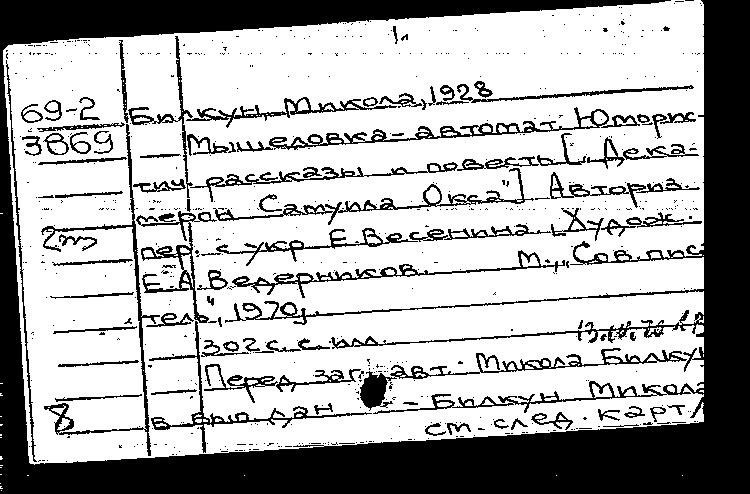 1.
69-2 Билкун, Микола, 1928
3869 Мышеловка-автомат. Юморис-
тич. рассказы и повесть [„Дека-
мерон Самуила Окса"] Авториз.
2m пер. с укр. Е. Весенина. Худож.
Е.А. Ведерников. М., „Сов. писа
тель", 1970.
302 с. с илл.
Перед загл. авт.: Микола Билкун
8 в вып дан – Билкун Микола
см. след. карт